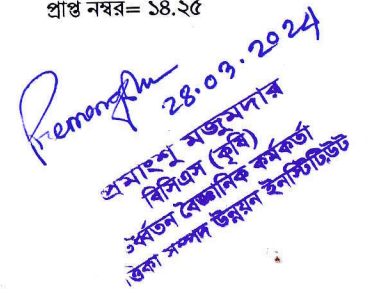 প্রাপ্ত নম্বর= ১৪.২৫
28.03.2024
প্রমাংশু মজুমদার
বিসিএস (কৃষি)
র্ধ্বতন বৈজ্ঞানিক কর্মকর্তা
ত্তিকা সম্পদ উন্নয়ন ইনস্টিটিউট